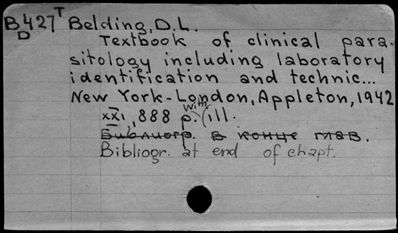 B427 T Belding, D.L.
D Textbook of clinical para-
sitology including laboratory
identification and technic...
New York-London, Appleton, 1942
with
xxi, 888 p. (ill.
Библиогр. в конце глав.
Bibliogr. at end of chapt.